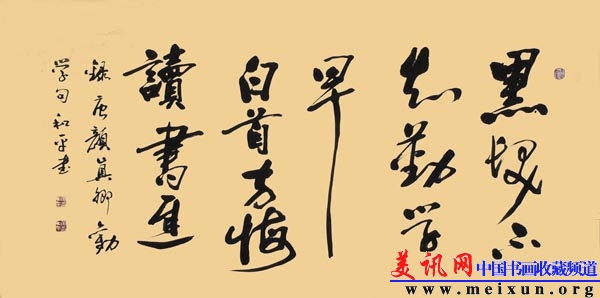 黑髮不
知勤学
早
白首方悔
讀書遲
錄唐顏真卿勸
学句 和平書
美讯网
中国书画收藏频道
www.meixun.org